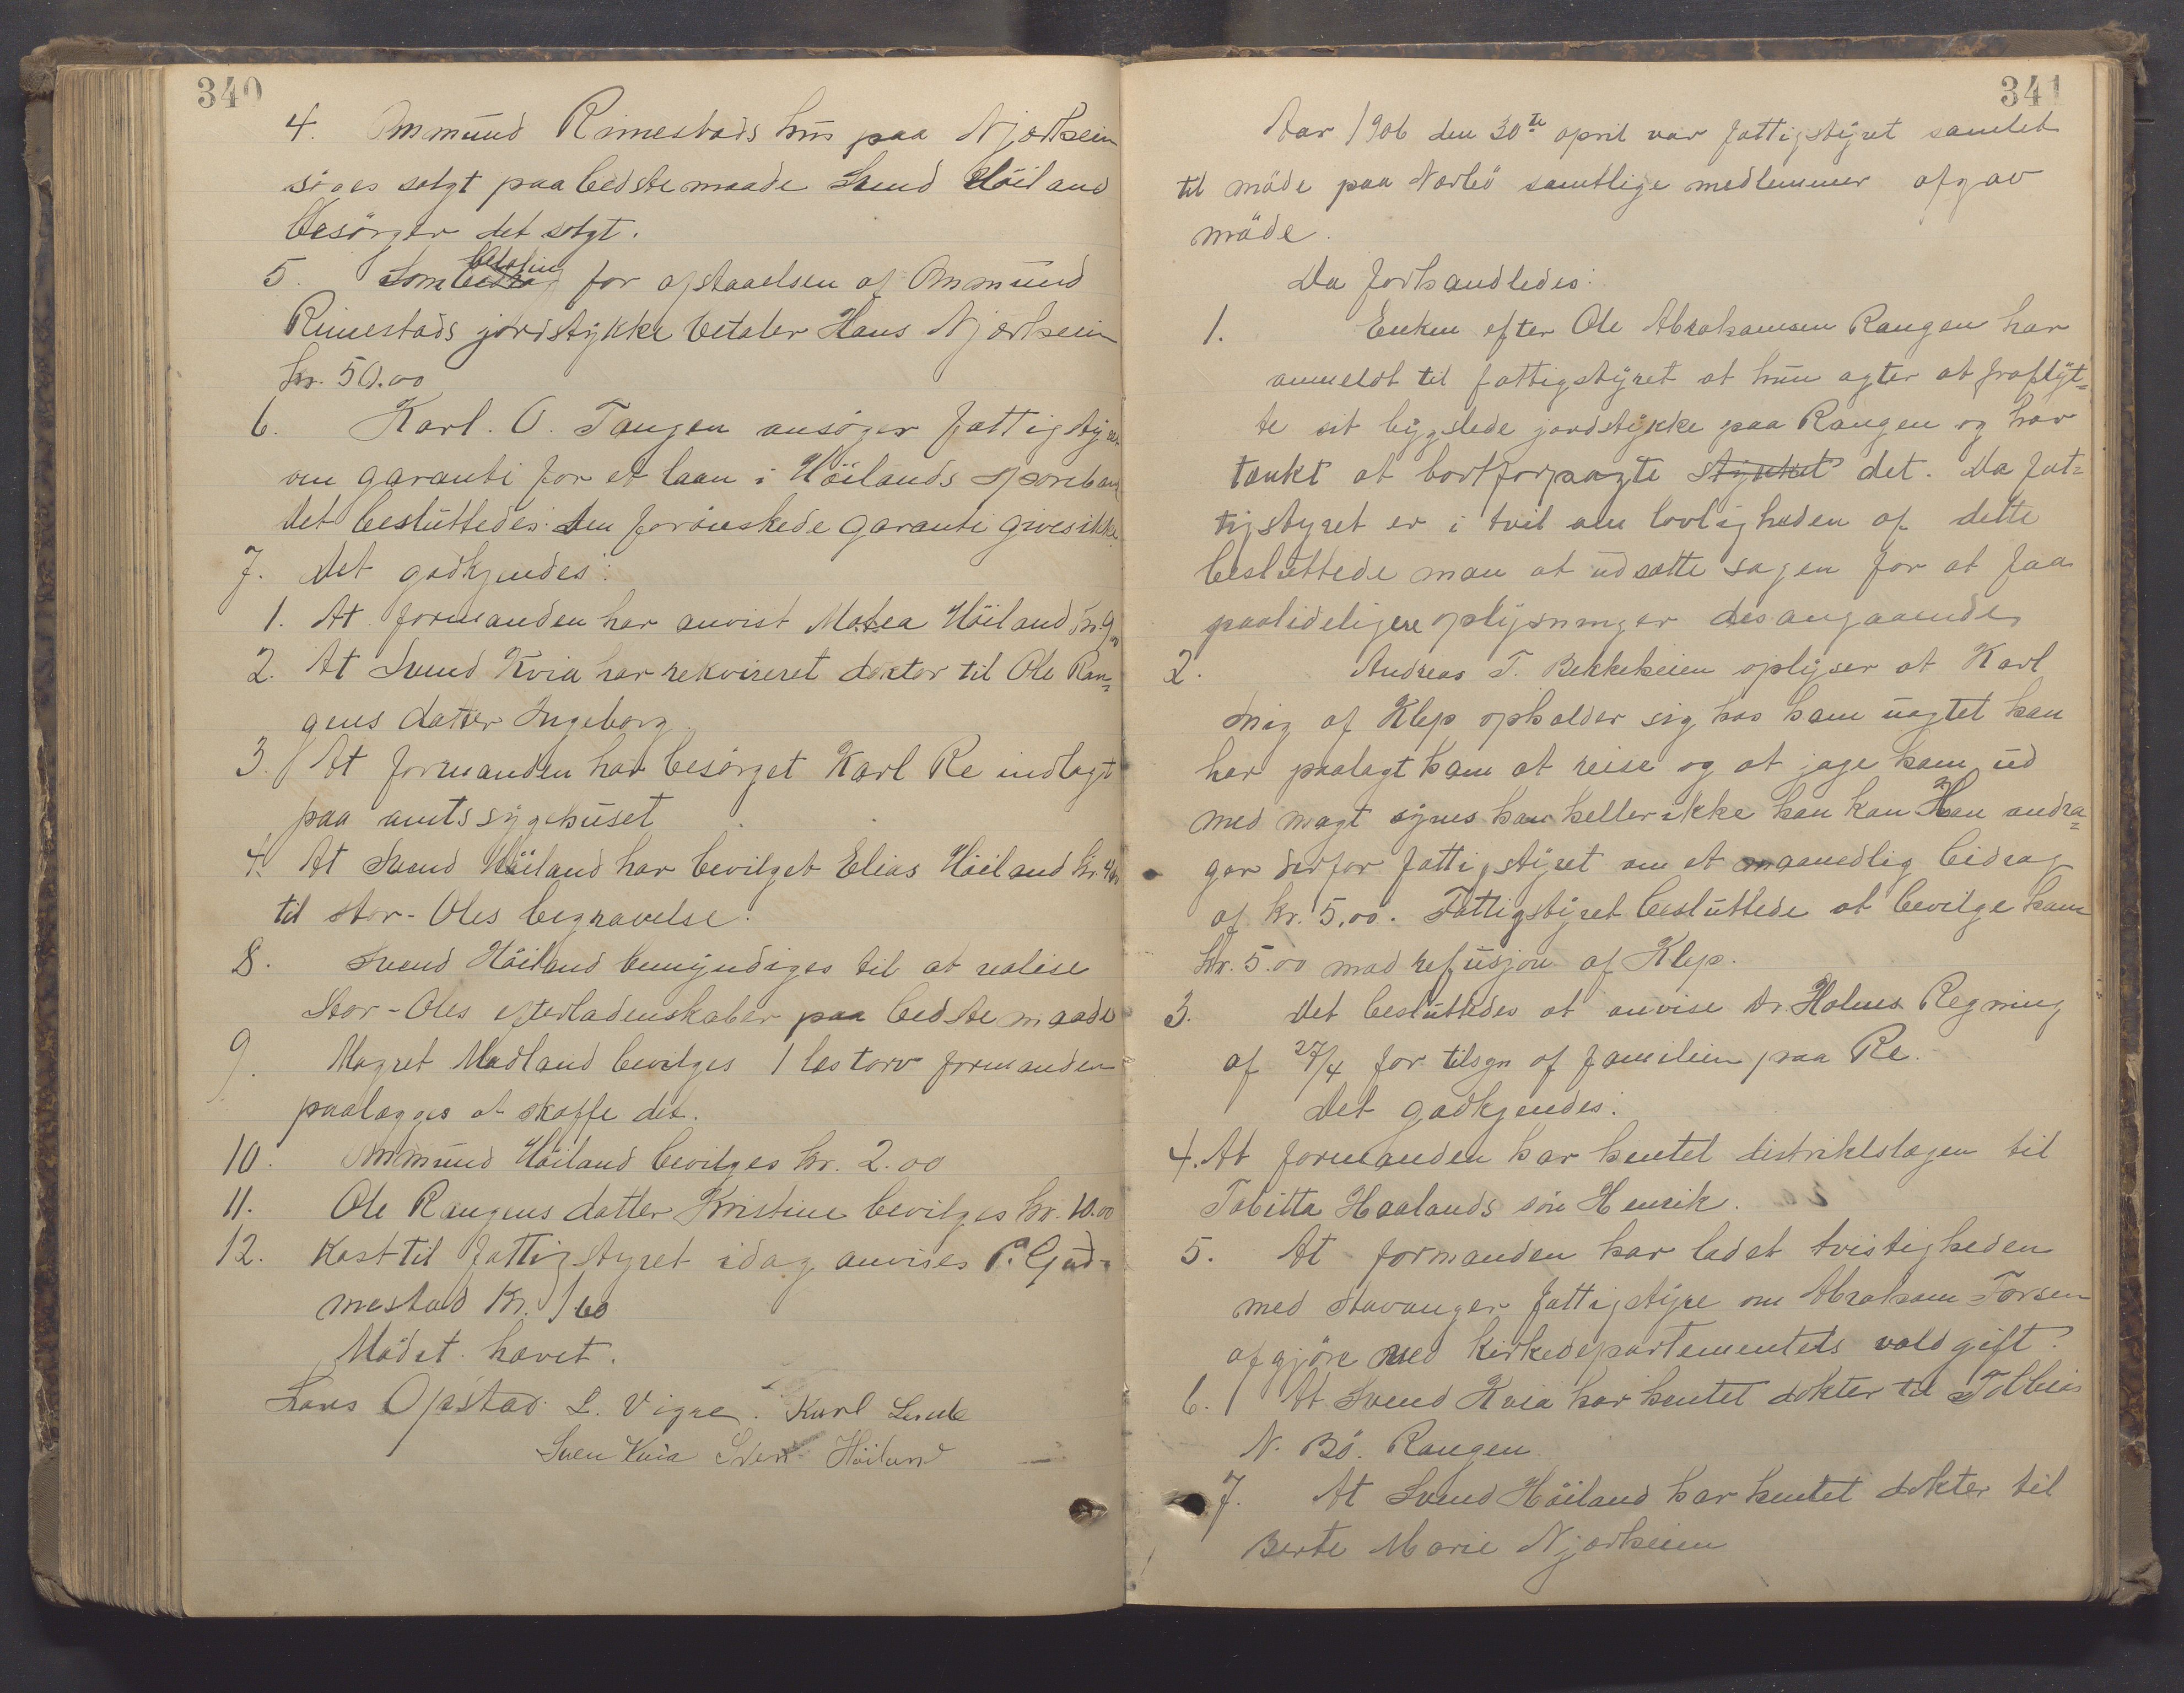 340
4. Ommund Rimestads hus paa Njærheim
söges solgt paa bedste maade Svend Höiland
besörger det solgt.
5. Som betaling for afstaaelsen af Ommund
Rimestads jordstykke betaler Hans Njærheim
kr. 50.00
6. Karl. O. Tangen ansöger fattigstyret
om garanti for et laan i Höilands sparebank
det besluttedes: den forönskede garanti gives ikke.
7. Det godkjendes:
1. At formanden har anvist Matea Höiland kr. 9
2. At Svend Kvia har rekvireret doktor til Ole Ran=
gens datter Ingeborg.
3. At formanden har besörget Karl Re indlagt
paa amtssygehuset
4. At Svend Höiland har bevilget Elias Höiland kr. 4.00
til Stor-Oles begravelse.
8. Svend Höiland bemyndiges til at realise
Stor-Oles efterladenskaber paa bedste maade
9. Magret Madland bevilges 1 læs torv formanden
paalægges at skaffe det.
10. Ommund Höiland bevilges kr. 2.00
11. Ole Rangens datter Kristine bevilges kr. 10.00
12. Kost til fattigstyret idag anvises P. Gud=
mestad kr. 1.60
Mödet hævet.
Lars Opstad. L. Vigre. Karl Lende
Sven Kvia Sven Höiland
341
Aar 1906 den 30te april var fattigstyret samlet
til möde paa Nærbö samtlige medlemmer afgav
möde.
Da forhandledes:
1. Enken efter Ole Abrahamsen Rangen har
anmeldt til fattigstyret at hun agter at fraflyt=
te sit bygslede jordstykke paa Rangen og har
tænkt at bortforpagte stykket det. Da fat=
tigstyret er i tvil om lovligheden af dette
besluttede man at udsætte sagen for at faa
paalideligere oplysninger desangaaende,
2. Andreas T. Bekkeheien oplyser at Karl
Anig af Klep opholder sig hos ham uagtet han
har paalagt ham at reise og at jage ham ud
med magt synes han heller ikke han kan Han andra=
gar derfor fattigstyret om et maanedlig bidrag
af kr. 5.00. Fattigstyret besluttede at bevilge ham
kr. 5.00 mod refusjon af Klep.
3. Det besluttedes at anvise Dr. Holmes Regning
af 27/4 for tilsyn af familien paa Re.
Det godkjendes:
4. At formanden har hentet distriktslægen til
Tabitta Haalands sön Henrik.
5. At formanden har ladet tvistigheden
med Stavanger fattigstyre om Abraham Torsen
afgjöre ved kirkedepartementets voldgift.
6. At Svend Kvia har hentet dokter til Tobbias
N. Bö. Rangen
7. At Svend Höiland har hentet dokter til
Berte Marie Njærheim